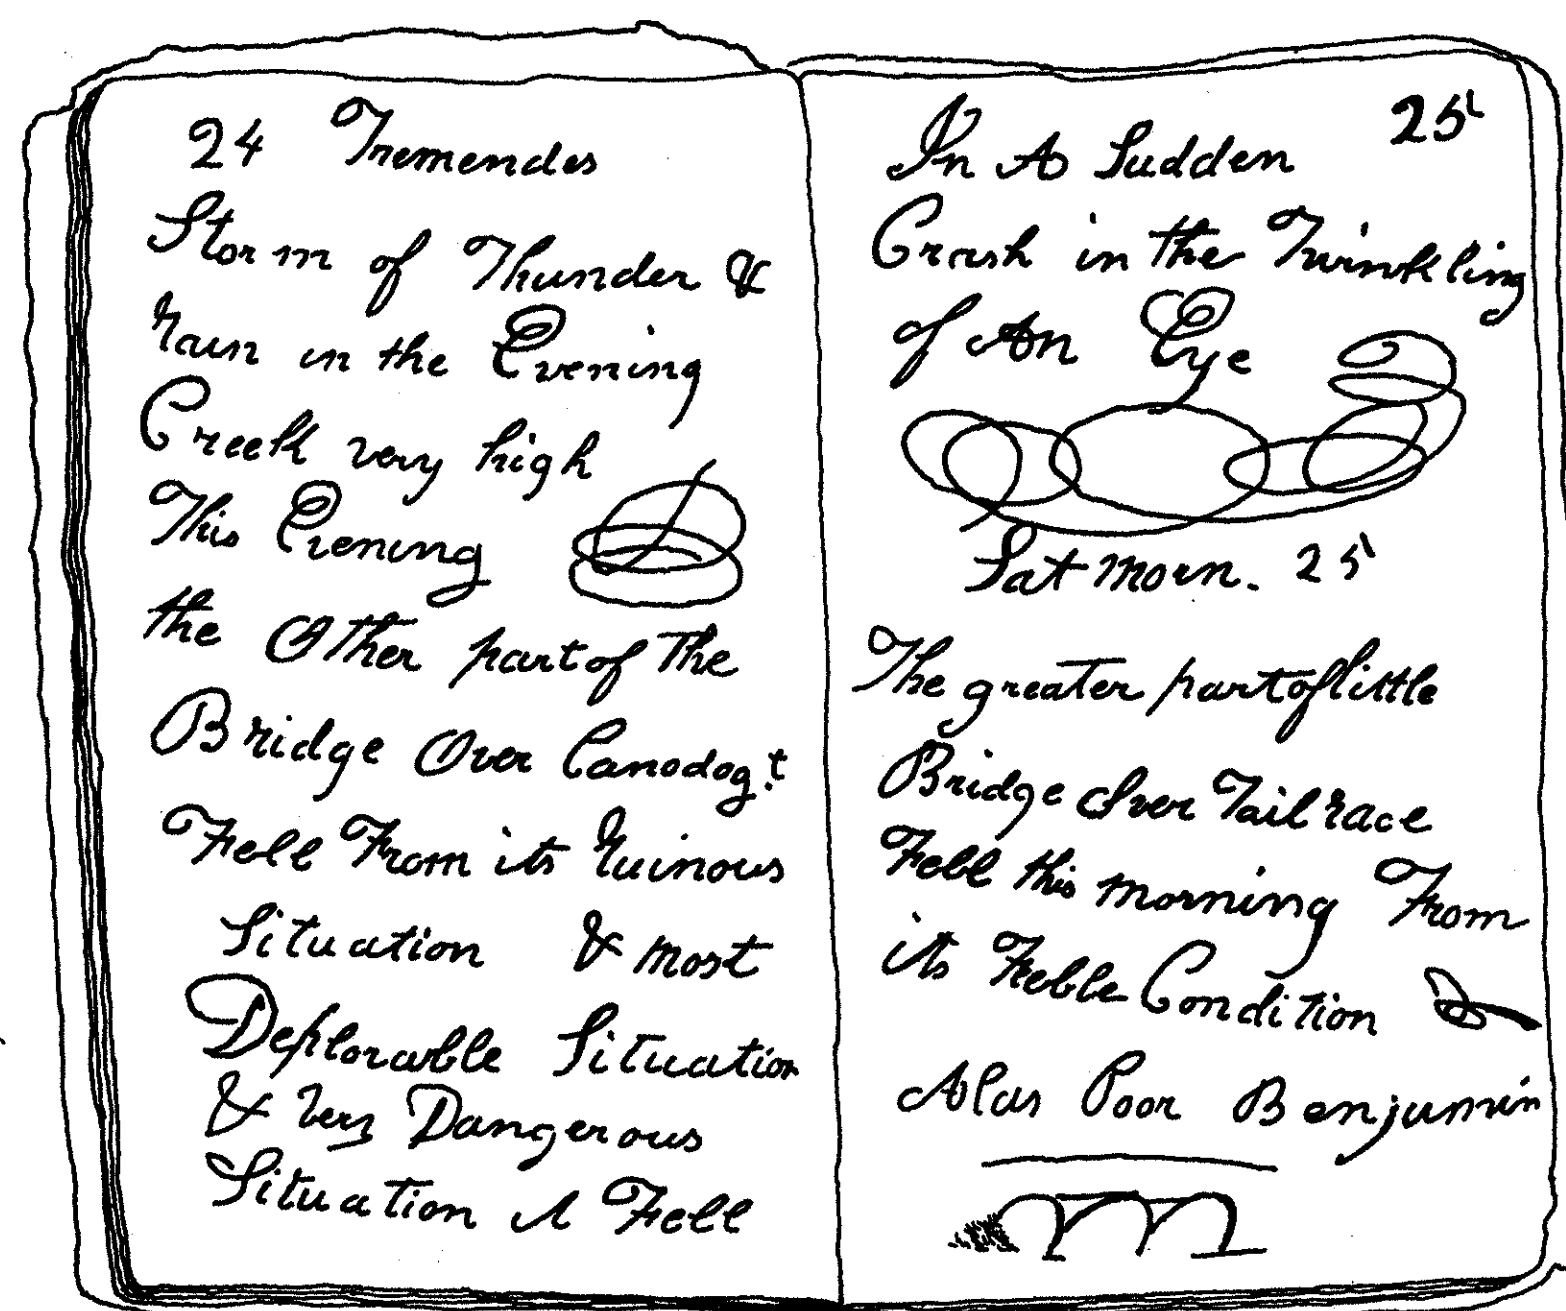 24 Tremendes
Storm of Thunder &
rain in the Evening
Creek very high
This Evening
the Other part of The
Bridge Over Canodog.t
Fell From its ruinous
Situation & most
Deplorable Situation
& very Dangerous
Situation A Fell
25
In A Sudden
Crash in the Twinkling
of An Eye
Sat morn. 25
The greater part of little
Bridge Over Tail race
Fell this morning From
its Feble Condition
Alas Poor Benjamin